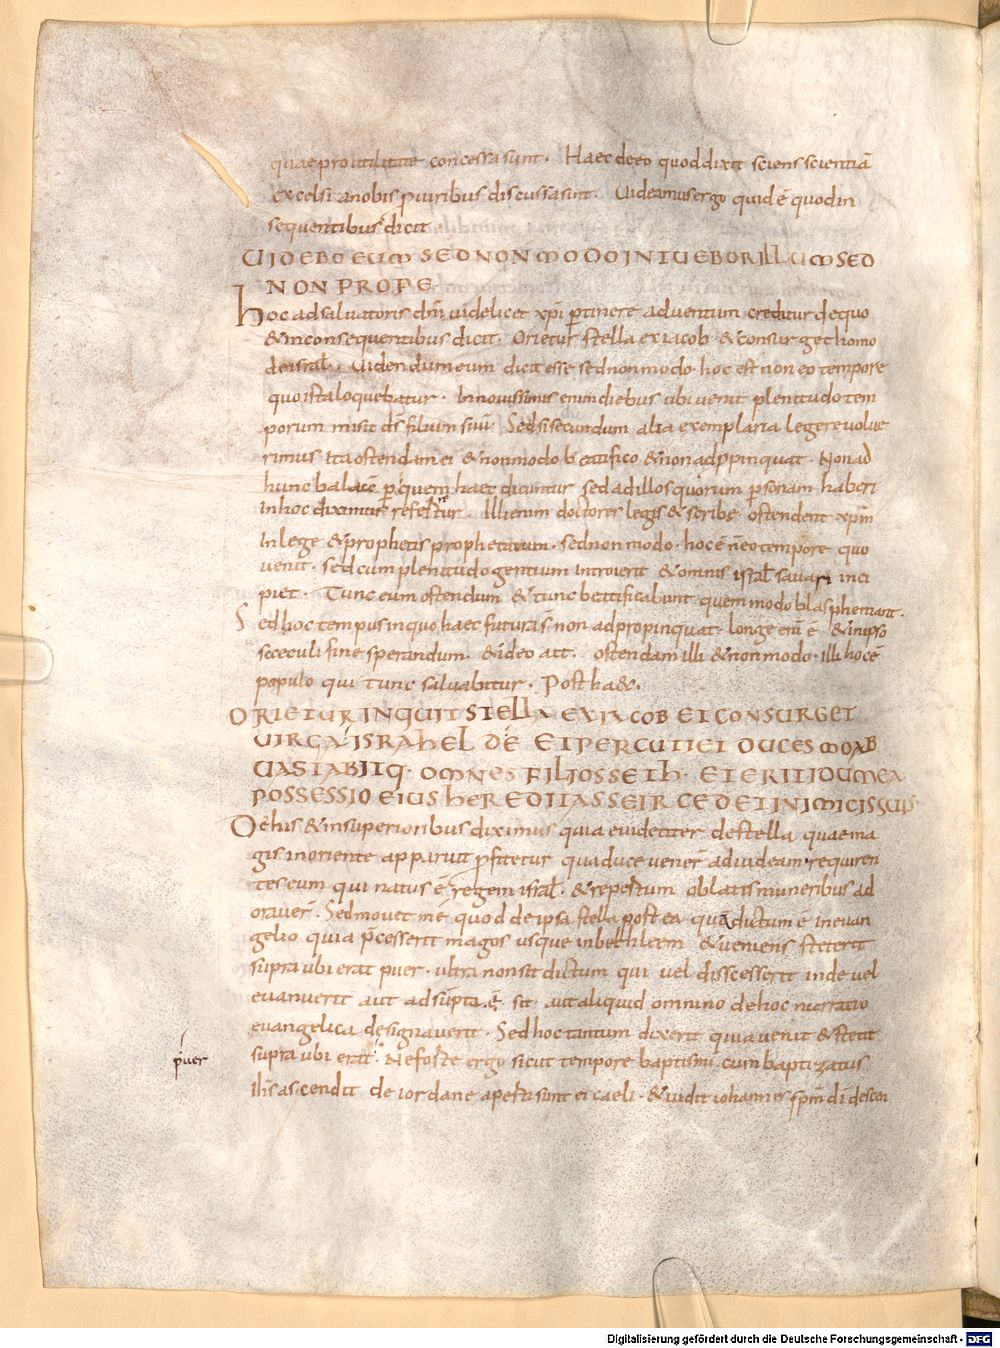 quae pro utilitate concessa sunt. Haec de eo quod dixit sciens scientiā
excelsi a nobis p uiribus discussa sint. Uideamus ergo quid ē quod in
sequentibus dicit
UIDEBO EUM SED NON MODO INTUEBOR ILLUM SED
NON PROPE
hoc ad saluatoris dn̄i uidelicet xp̄i ptinere aduentum creditur de quo
& in consequentibus dicit. Orietur stella ex iacob & consurget homo
de isrl̄. Uidendum eum dicit esse sed non modo hoc est non eo tempore
quo ista loquebatur. In nouissimis enim diebus ubi uenit plenitudo tem
porum misit d̄s filium suū. Sed si secundum alia exemplaria legere uolue
rimus ita ostendam ei & non modo beatifico & non adp̄pinquat. Non ad
hunc balaac p quem haec dicuntur sed ad illos quorum p̄sonam haberi
in hoc diximus refertur. Illi enim doctores legis & scribe ostendent xp̄m
in lege & prophetis prophetatum. sed non modo. hoc ē n̄ eo tempore quo
uenit. sed cum plenitudo gentium introierit & omnis isrl̄ saluari inci
piet. Tunc eum ostendum & tunc beatificabunt quem modo blasphemant.
Sed hoc tempus in quo haec futura s̄ non adpropinquat. longe enī ē & in ipso
saeculi fine sperandum. & ideo ait. ostendam illi & non modo. illi hoc ē
populo qui tunc saluabitur. Post haec.
ORIETUR INQUIT STELLA EX IACOB ET CONSURGET
UIRGA ISRAHEL DE ET PERCUTIET DUCES MOAB
UASTABITQ. OMNES FILIOS SETH. ET ERIT IDUMEA
POSSESSIO EIUS HEREDITAS SEIR CEDET INIMICIS SUIS
De his & in superioribus diximus quia euidenter de stella quae ma
gis in oriente apparuit p̄fitetur qua duce uener̄ ad iudeam requiren
tes eum qui natus ē regem isrl̄. & repertum oblatis muneribus ad
orauer̄. Sed mouet me quod de ipsa stella postea quā dictum ē in euan
gelio quia p̄cesserit magos usque in bethleem & ueniens steterit
supra ubi erat puer. ultra non sit dictum qui uel disscesserit inde uel
euanuerit aut adsūpta ē sit aut aliquid omnino de hoc narratio
euangelica designauerit. Sed hoc tantum dixerit quia uenit & stetit
supra ubi erat. Ne forte ergo sicut tempore baptismi cum baptizatus
ih̄s ascendit de iordane aperti sunt ei caeli. & uidit iohannes sp̄m dī descen
puer
Digitalisierung gefördert durch die Deutsche Forschungsgemeinschaft - DFG